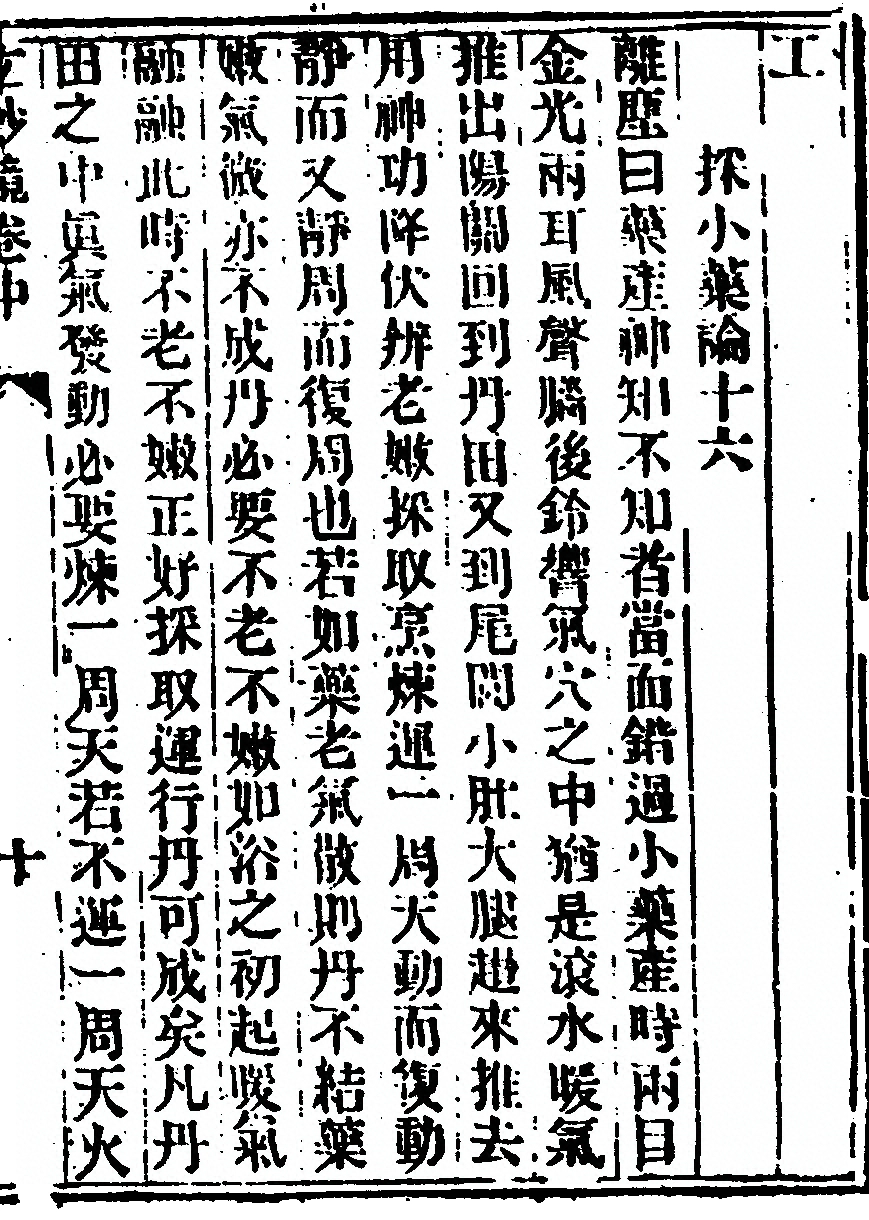 工
採小藥論十六
離塵曰藥產神知不知者當面錯過小藥產時兩目
金光兩耳風聲腦後鈴響氣穴之中猶是滾水暖氣
推出陽關回到丹田又到尾閭小肚大腿趕來推去
用神功降伏辨老嫩採取烹煉運一周天動而復動
靜而又靜周而復周也若如藥老氣散則丹不結藥
嫩氣微亦不成丹必要不老不嫩如浴之初起暖氣
融融此時不老不嫩正好採取運行丹可成矣凡丹
田之中眞氣發動必要煉一周天若不運一周天火
玄妙鏡卷中
十